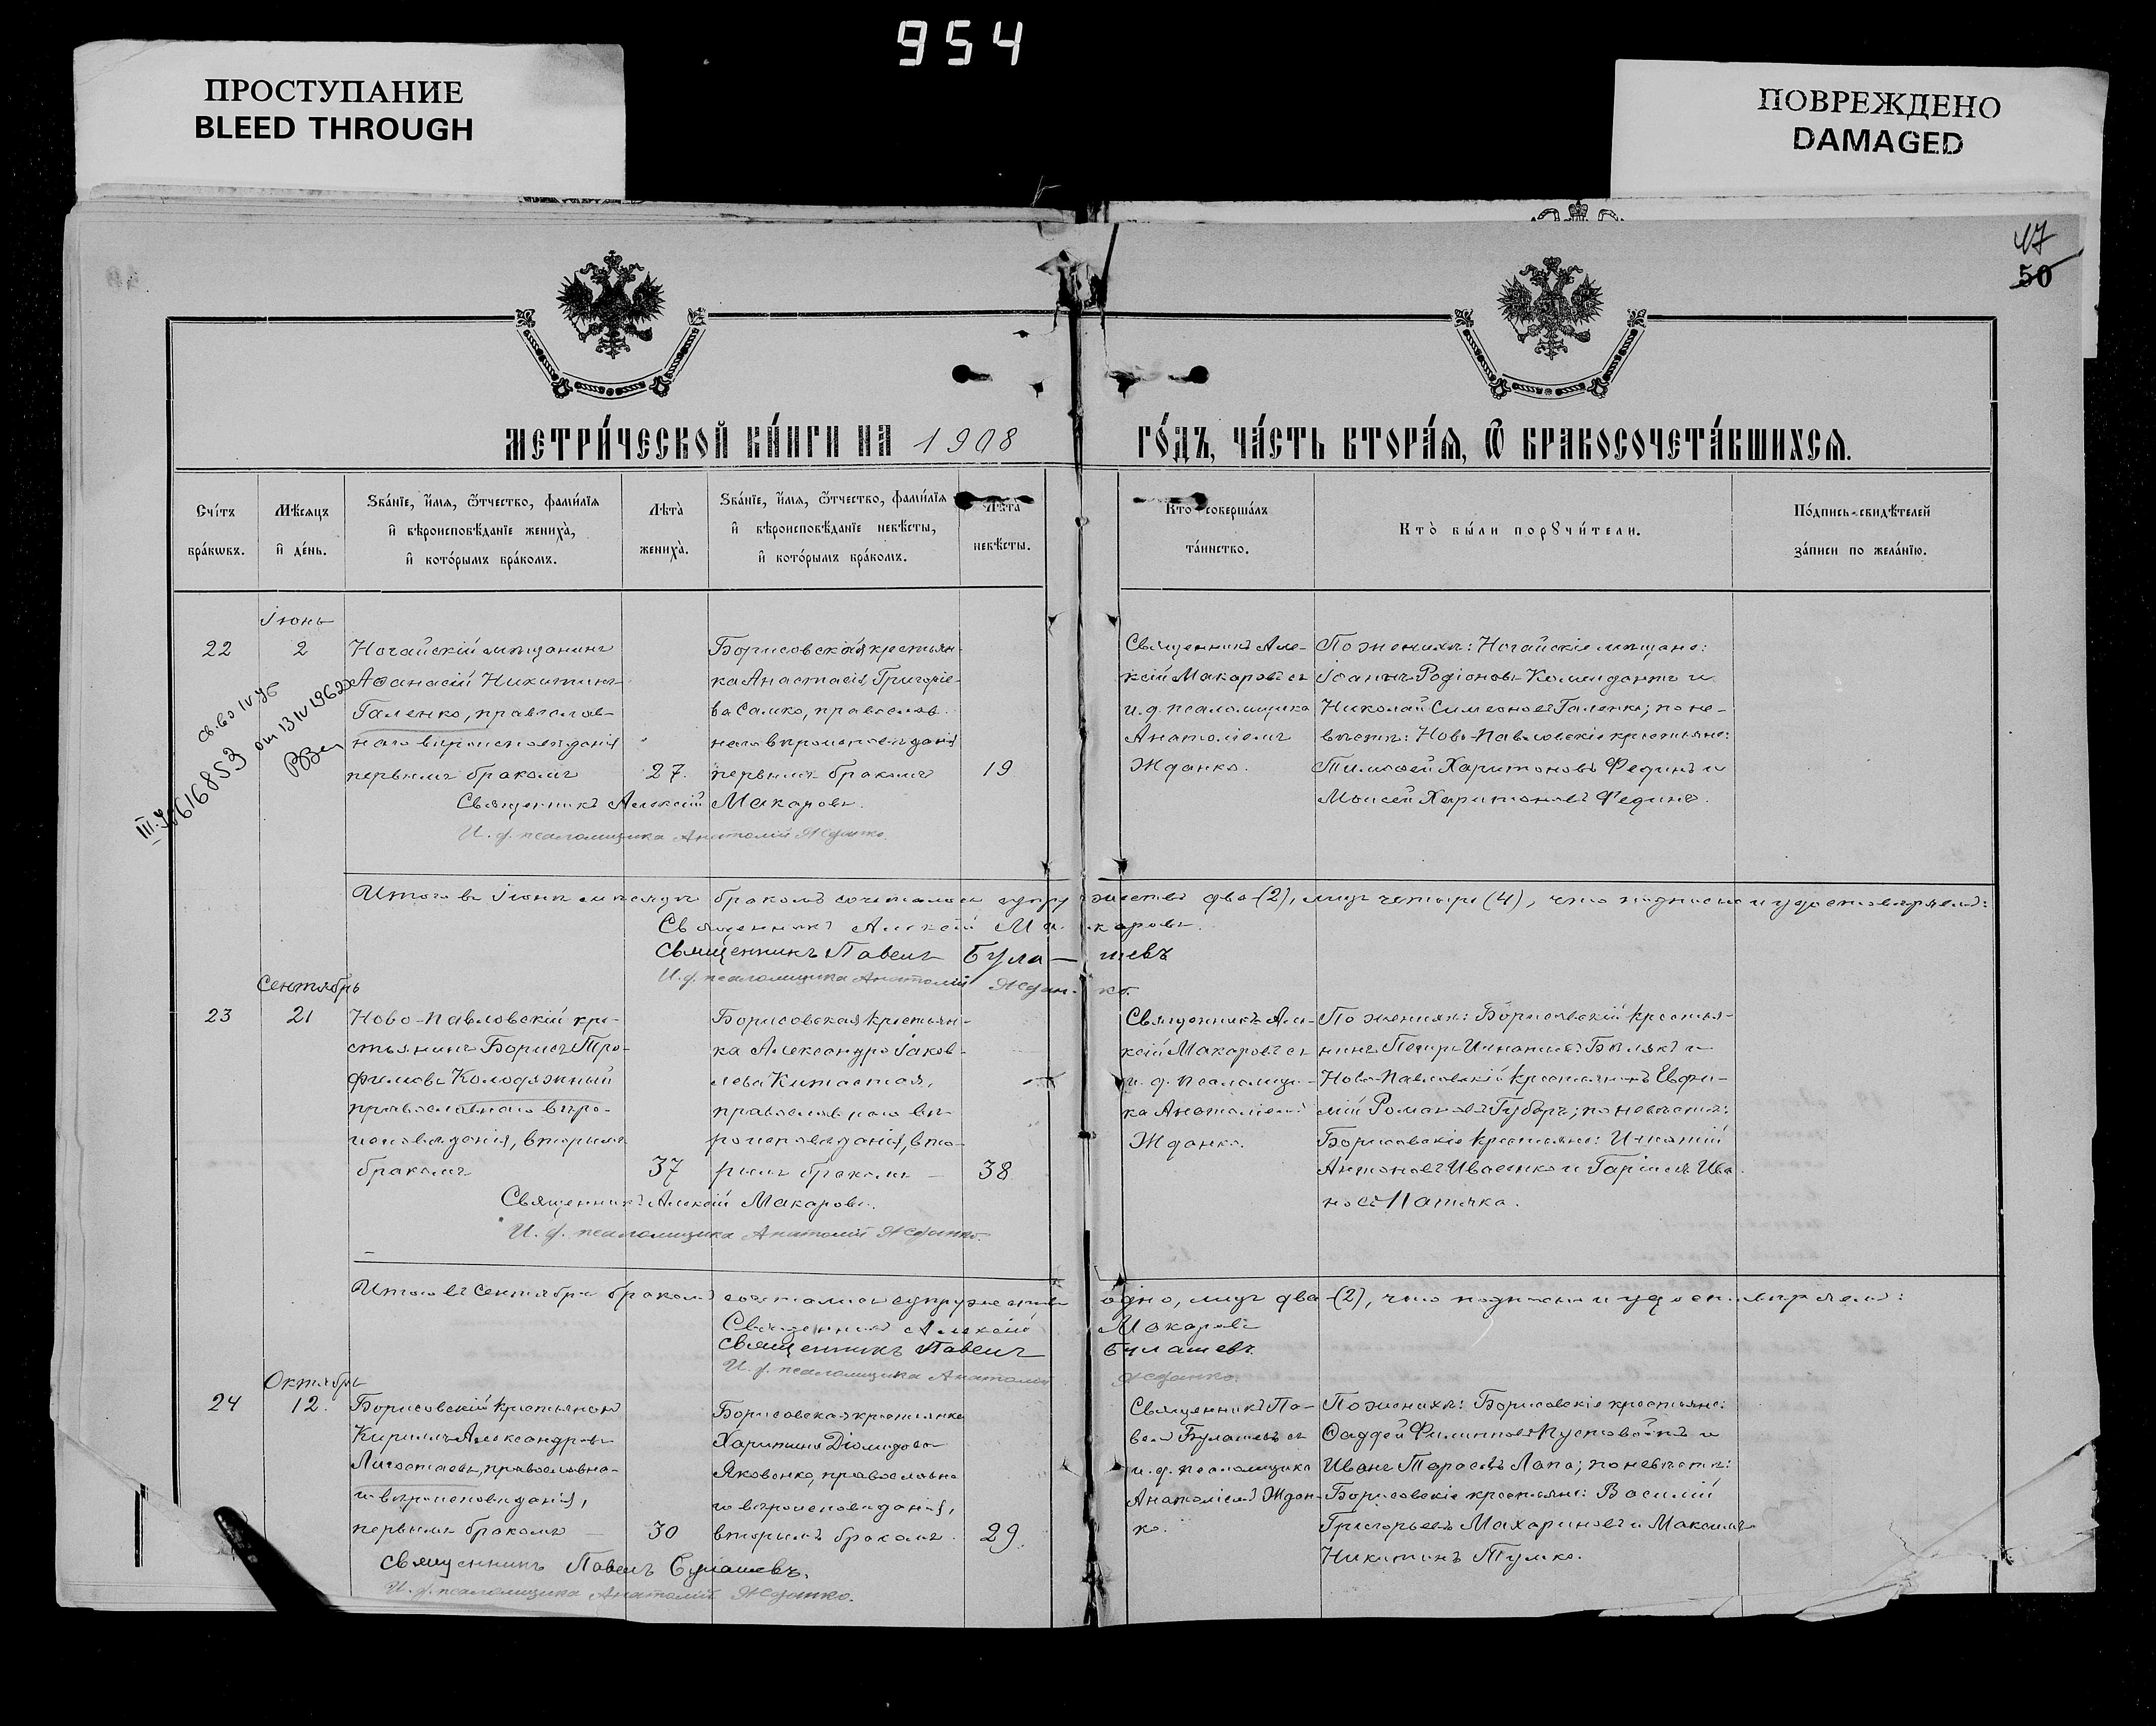 954
ПРОСТУПАНИЕ
BLEED THROUGH
ПОВРЕЖДЕНО
DAMAGED
47
50
МЕТРИ́ЧЕСКОЙ КНИ́ГИ НА 1908
ГО́ДЪ, ЧА́СТЬ ВТОРА́Я, Ѿ БРАКОСОЧЕТА́ВШИХСЯ.
Сче́тъ бра́кѡвъ.
Мѣ́сяцъ и҆ де́нь.
Ѕва́нїе, и҆́мя, ѻ҆́тчество, фами́лїя и҆ вѣроисповѣ́данїе жениха̀, и҆ кото́рымъ бра́комъ.
Лѣ́та жениха̀.
Ѕва́нїе, и҆́мя, ѻ҆́тчество, фами́лїя и҆ вѣроисповѣ́данїе невѣ́сты, и҆ кото́рымъ бра́комъ.
Лѣ́та невѣ́сты.
Кто̀ соверша́лъ та́инство.
Кто̀ бы́ли порꙋчи́тели.
По́дпись свидѣ́телей за́писи по жела́нїю.
Іюнь
22
2
Ногайскій мѣщанинъ
Аѳанасій Никитинъ
Галенко, православ-
наго вѣроисповѣданія
первымъ бракомъ
27.
Борисовская крестьян-
ка Анастасія Григорье-
ва Самко, православ-
наго вѣроисповѣданія
первымъ бракомъ
19
Священникъ Але-
ксій Макаровъ съ
и. д. псаломщика
Анатоліемъ
Жданко.
По женихѣ: Ногайскіе мѣщане:
Іоаннъ Родіоновъ Комендантъ и
Николай Симеоновъ Галенко; по не-
вѣстѣ: Ново-Павловскіе крестьяне:
Тимоѳей Харитоновъ Фединъ и
Моисей Харитоновъ Фединъ.
от 13 IV 1962
Священникъ Алексій Макаровъ.
И. д. псаломщика Анатолій Жданко.
Итого въ Іюнѣ мѣсяцѣ бракомъ сочеталось супружествъ два (2), лицъ четыре (4), что подписью и удостовѣряемъ:
Священникъ Алексій Макаровъ.
Священникъ Павелъ Булашевъ
И. д. псаломщика Анатолій Жданко.
Сентябрь
23
21
Ново-Павловскій кре-
стьянинъ Борисъ Тро-
фимовъ Колодяжный
православнаго вѣро-
исповѣданія, вторымъ
бракомъ
37
Борисовская крестьян-
ка Александра Іаков-
лева Китаетая,
православнаго вѣ-
роисповѣданія, вто-
рымъ бракомъ
38
Священникъ Але-
ксій Макаровъ съ
и. д. псаломщи-
ка Анатоліемъ
Жданко.
По женихѣ: Борисовскій крестья-
нинъ Петръ Игнатьевъ Бѣлякъ и
Ново-Павловскій крестьянинъ Евфи-
мій Романовъ Губарь; по невѣстѣ:
Борисовскіе крестьяне: Игнатій
Антоновъ Иваенко и Гаріилъ Ива-
новъ Патяка.
Священникъ Алексій Макаровъ.
И. д. псаломщика Анатолій Жданко.
Итого въ Сентябрѣ бракомъ сочеталось супружество одно, лицъ два (2), что подписью и удостовѣряемъ:
Священникъ Алексій Макаровъ
Священникъ Павелъ Булашевъ.
И. д. псаломщика Анатолій Жданко.
Октябрь
24
12.
Борисовскій крестьянинъ
Кириллъ Александровъ
Лигостаевъ, православна-
го вѣроисповѣданія,
первымъ бракомъ
30
Борисовская крестьянка
Харитина Діомидова
Яковенко, православна
го вѣроисповѣданія,
вторымъ бракомъ.
29.
Священникъ Па-
велъ Булашевъ съ
и. д. псаломщика
Анатоліемъ Ждан-
ко.
По женихѣ: Борисовскіе крестьяне:
Ѳаддей Филипповъ Пустовойтъ и
Иванъ Тарасовъ Лапа; по невѣстѣ:
Борисовскіе крестьяне: Василій
Григорьевъ Махариновъ и Максимъ
Никитинъ Тумко.
Священникъ Павелъ Булашевъ.
И. д. псаломщика Анатолій Жданко.